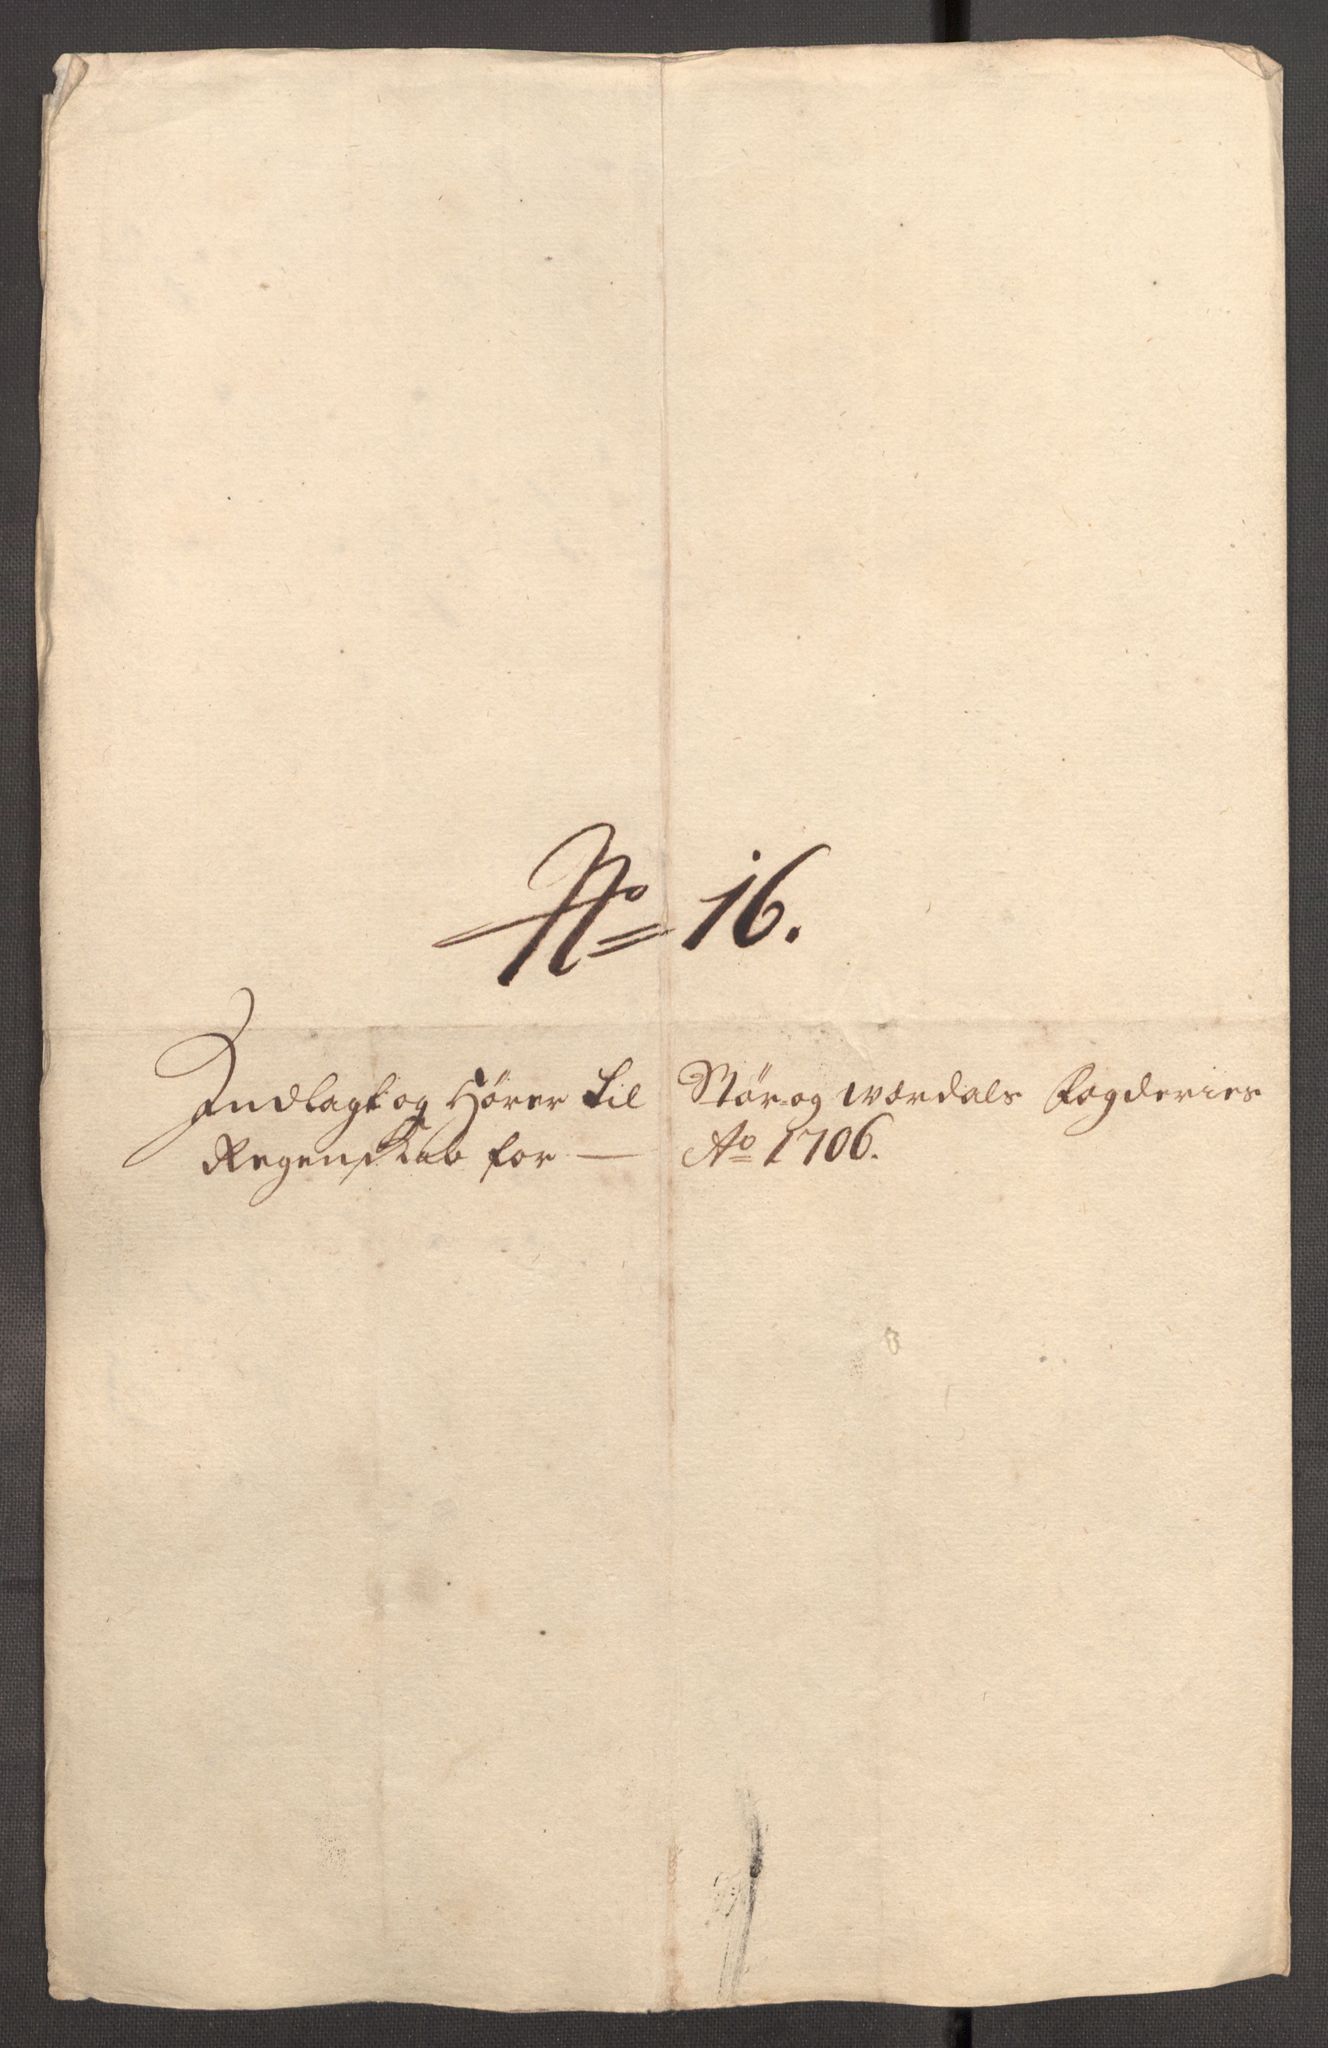 No 16.
Indlagt og Hører til Stør og Værdals Fogderies
Regenskab for — Ao 1706.